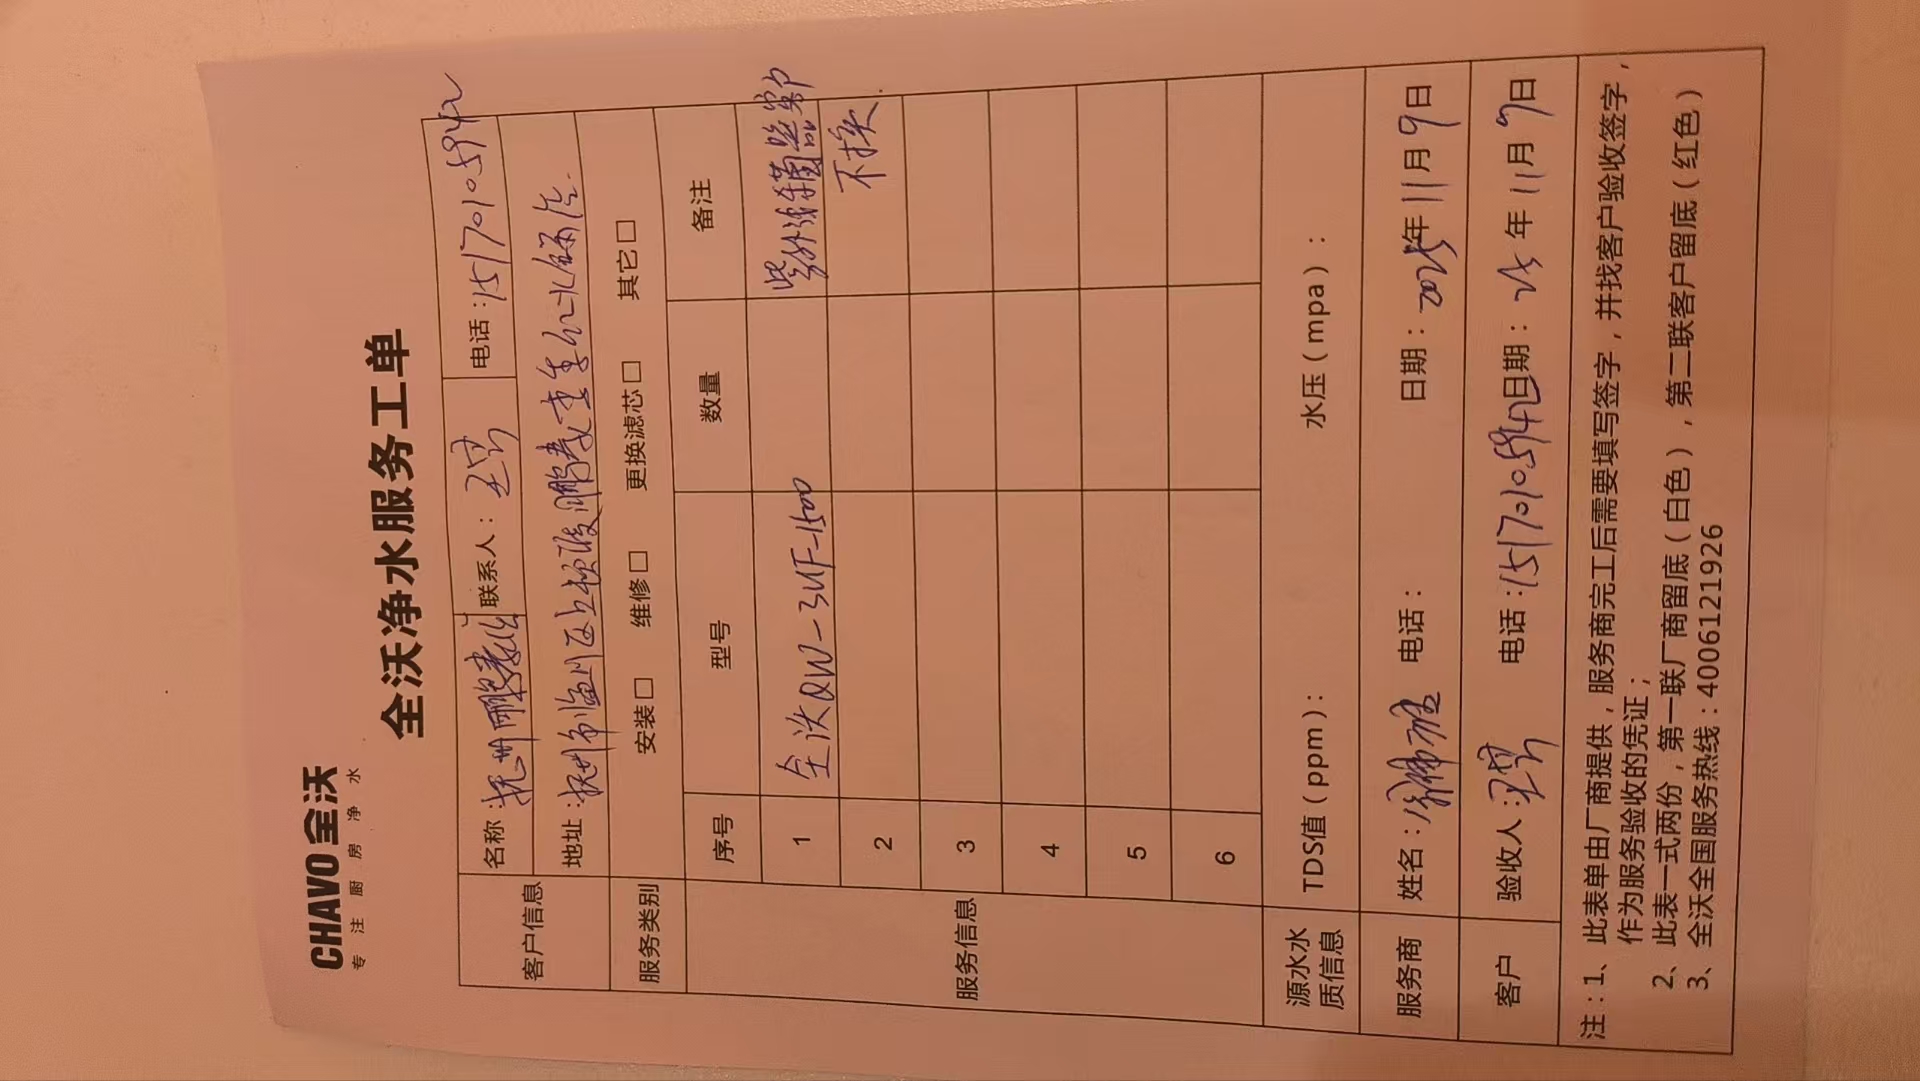 CHAVO 全沃
专注厨房净水
全沃净水服务工单
客户信息 名称: 抚州 联系人: 电话:15170105942
地址: 抚州市临川区上顿渡
服务类别 安装□ 维修□ 更换滤芯□ 其它□
服务信息 序号 型号 数量 备注
1 全沃QW-3UF-1500 紫外线
2 不换
3
4
5
6
源水水质信息 TDS值(ppm): 水压(mpa):
服务商 姓名: 电话: 日期: 2025年11月9日
客户 验收人: 电话:15170105942 日期: 25年11月9日
注:1、此表单由厂商提供,服务商完工后需要填写签字,并找客户验收签字,
作为服务验收的凭证;
2、此表一式两份,第一联厂商留底(白色),第二联客户留底(红色)
3、全沃全国服务热线:4006121926